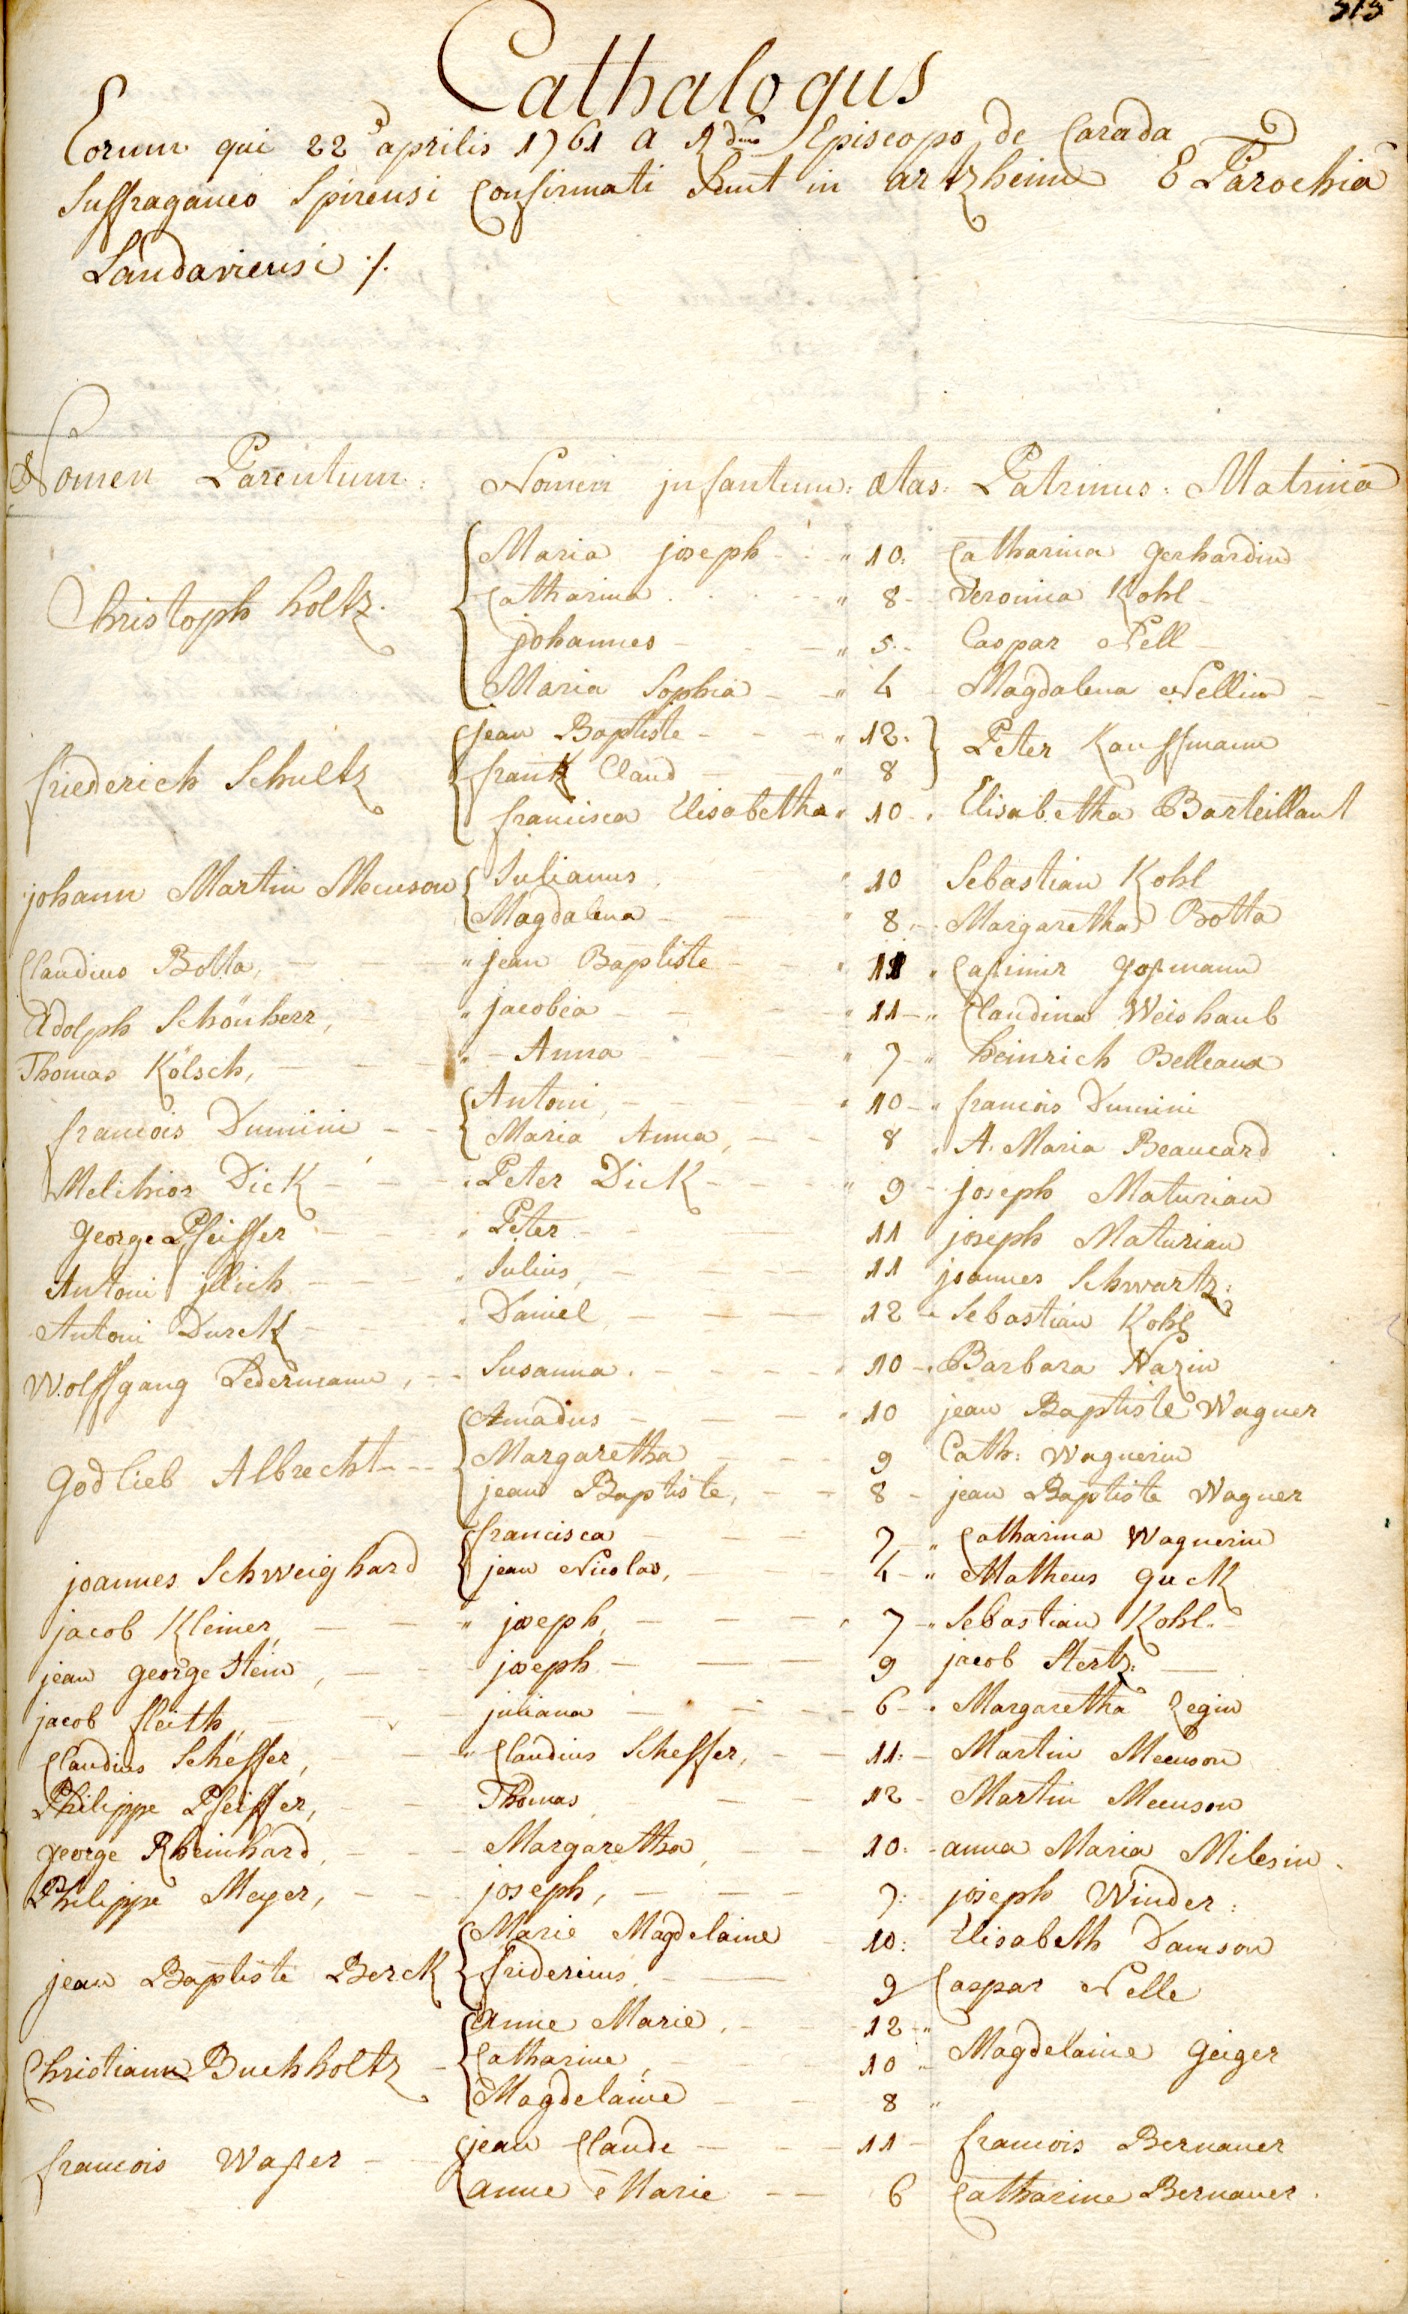 515
Cathalogus
Eorum qui 22â aprilis 1761 a Rdmo Episcopo de Carada
Suffraganeo Spirensi Confirmati Sunt in artzheim E Parochia
Landaviensi ./.
Nomen Parentum: Nomen jnfantium: ætas: Patrinus: Matrina
Christoph holtz. Maria joseph 10: Catharina gerhardin
Catharina 8 Veronica Kohl
johannes 5. Caspar Nell
Maria Sophia 4 Magdalena Nellin
friederich Schultz jean Baptiste 12. Peter Kauffmann
frantz Claud 8
francisca Elisabetha 10 Elisabetha Barteillant
johann Martin Meuson Julianus 10 Sebastian Kohl
Magdalena 8 Margaretha Botta
Claudius Botta, jean Baptiste 11 Casimir goßmann
Adolph Schönherr, jacobea 11 Claudina Weishaub
Thomas Kölsch, Anna 7 heinrich Belleaux
francois Dumini Antoni, 10 francois Dumini
Maria Anna, 8 A. Maria Beaucard
Melchior Dick Peter Dick 9 joseph Maturian
george Pfeiffer Peter 11 joseph Maturian
Antoni jllich Julius, 11 joannes Schwartz:
Antoni Durck Daniel 12 Sebastian Kohl
Wolffgang Ledermann, Susanna. 10 Barbara Nazin
godlieb Albrecht Amadus 10 jean Baptiste Wagner
Margaretha 9 Cath: Wagnerin
jean Baptiste, 8 jean Baptiste Wagner
joannes Schweighard francisca 7 Catharina Wagnerin
jean Nicolas, 4 Matheus guck
jacob Kleiner, joseph, 7 Sebastian Kohl.
jean george Stein, joseph 9 jacob Stertz:
jacob fleith, juliana 6 Margaretha Zegin
Claudius Scheffer, Claudius Scheffer, 11: Martin Meuson
Philippe Pfeiffer, Thomas 12 Martin Meuson
george Rheinhard, Margaretha, 10: anna Maria Milesin.
Philippe Meyer, joseph, 7: joseph Winder:
jean Baptiste Berck Marie Magdelaine 10: Elisabeth Damson
fridericus 9 Caspar Nelle
Christiann Buchholtz Anne Marie, 12
Catharine, 10 Magdelaine geiger
Magdelaine 8
francois Waßer jean Claude 11 francois Bernauer
anne Marie 6 Catharine Bernauer.